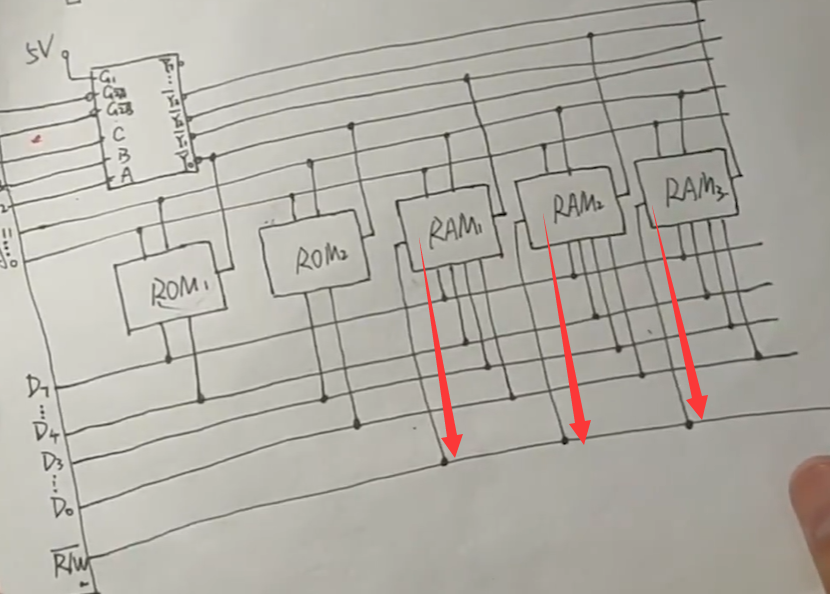 5V
G₁
G2A
G2B
C
B
A
Y₀
ROM₁
ROM₂
RAM₁
RAM₂
RAM₃
D₇
⋮
D₄
D₃
⋮
D₀
R/W